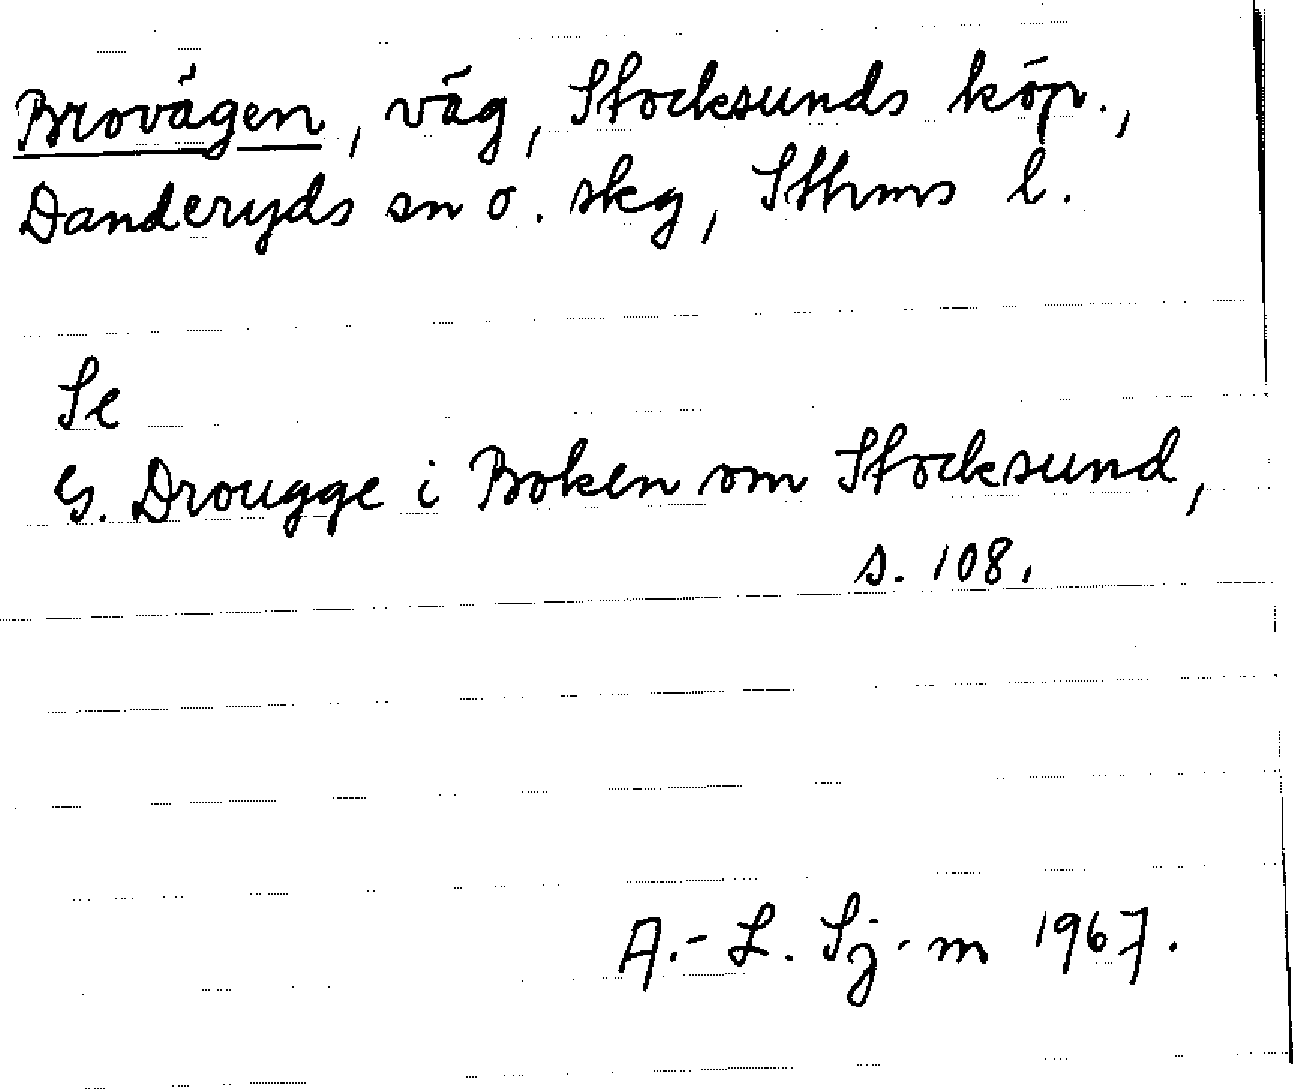 Brovägen, väg, Stocksunds köp.,
Danderyds sn o. skg, Sthms l.
Se
G. Drougge i Boken om Stocksund,
s. 108.
A.-L. Sj-m 1967.